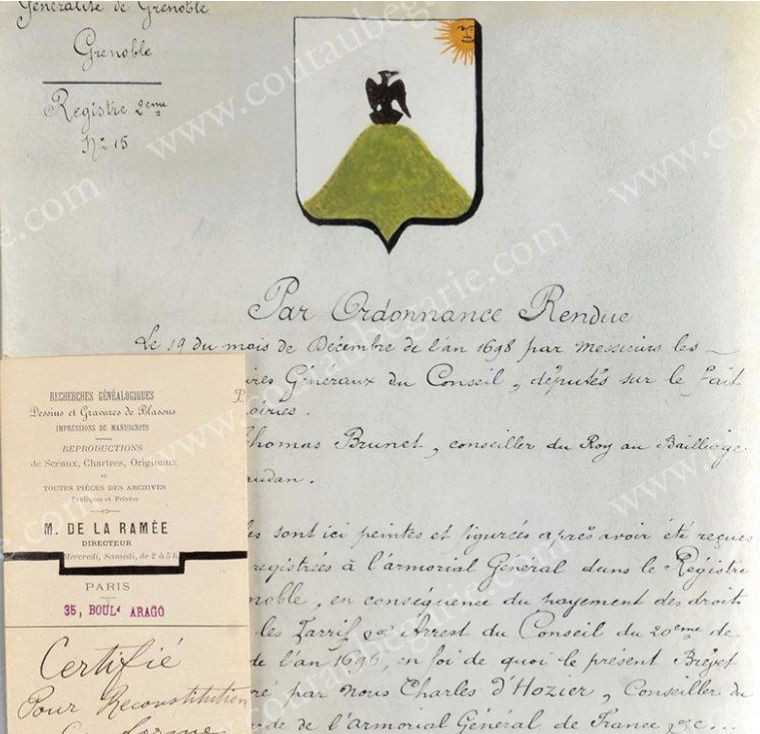 Généralité de Grenoble
Grenoble
Registre 2eme
No 15
Par Ordonnance Rendue
Le 19 du mois de Décembre de l'an 1698 par Messieurs les
ires Généraux du Conseil, députés sur le Fait
oiries.
Thomas Brunet, conseiller du Roy au Bailliage
audan.
les sont ici peintes et figurées après avoir été reçues
registrées à l'armorial Général dans le Régistre
noble, en conséquence du payement des droits
les Tarrif & Arrest du Conseil du 20eme de
de l'an 1696, en foi de quoi le présent Brevet
ré par Nous Charles d'Hozier, Conseiller du
arde de l'armorial Général de France, &c...
RECHERCHES GÉNÉALOGIQUES
Dessins et Gravures de Blasons
IMPRESSIONS DE MANUSCRITS
REPRODUCTIONS
de Sceaux, Chartres, Originaux
et
TOUTES PIÈCES DES ARCHIVES
Publiques et Privées
M. DE LA RAMÉE
DIRECTEUR
Mercredi, Samedi, de 2 à 5 h.
PARIS
35, BOULd ARAGO
Certifié
Pour Reconstitution
Conforme
www.coutaubegarie.com